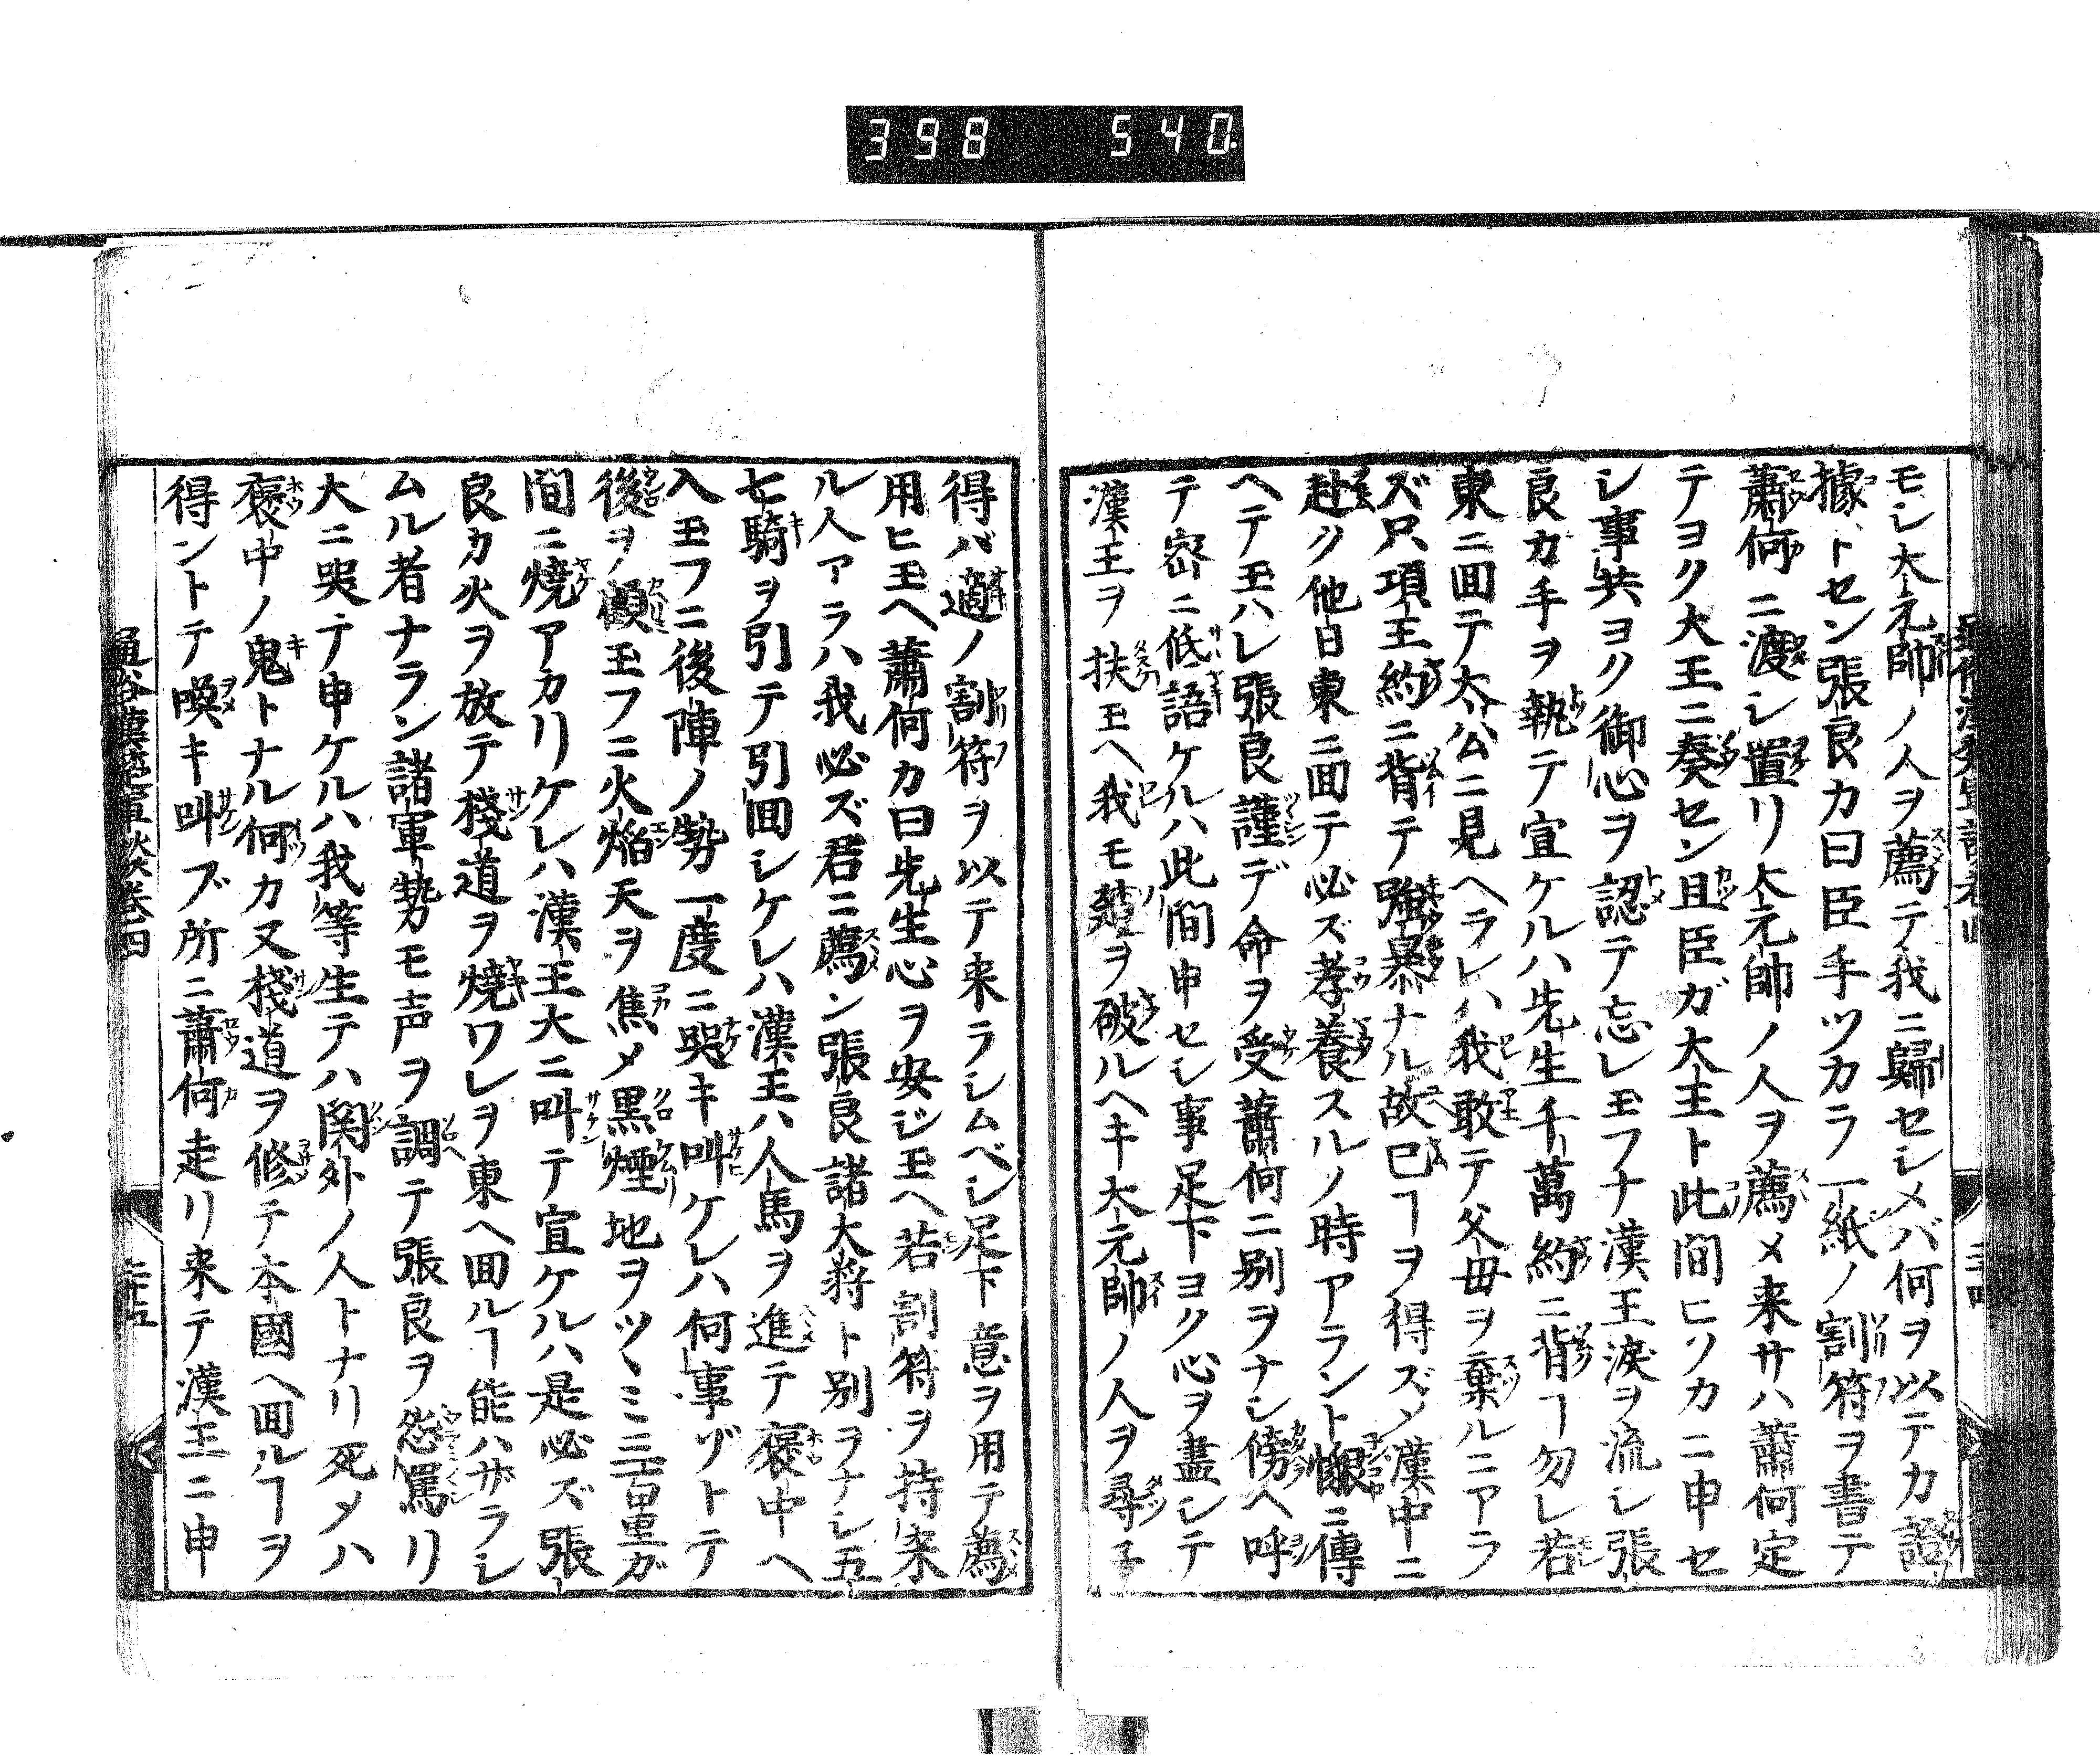 398 540.
モレ大元帥ノ人ヲ薦テ我ニ歸セシメバ何ヲ以テカ證
據トセン張良カ曰臣手ツカラ一紙ノ割符ヲ書テ
蕭何ニ渡シ置リ大元帥ノ人ヲ薦メ来サハ蕭何定
テヨク大王ニ奏セン且臣ガ大王ト此間ヒソカニ申セ
シ事共ヨク御心ヲ認テ忘レ玉フナ漢王涙ヲ流シ張
良カ手ヲ執テ宣ケルハ先生千萬約ニ背ヿ勿レ若
東ニ回テ太公ニ見ヘラレハ我敢テ父母ヲ棄ルニアラ
ズ只項王約ニ背テ強暴ナル故巳ヿヲ得ズメ漢中ニ
赴ク他日東ニ回テ必ズ孝養スルノ時アラント懇ニ傳
ヘテ玉ハレ張良謹デ命ヲ受蕭何ニ別ヲナシ傍ヘ呼
テ密ニ低語ケルハ此間申セシ事足下ヨク心ヲ盡シテ
漢王ヲ扶玉ヘ我モ楚ヲ破ルヘキ大元帥ノ人ヲ尋子
得バ適ノ割符ヲ以テ来ラシムベシ足下意ヲ用テ薦
用ヒ玉ヘ蕭何カ曰先生心ヲ安ジ玉ヘ若割符ヲ持来
ル人アラハ我必ズ君ニ薦ン張良諸大将ト別ヲナシ五
七騎ヲ引テ引回シケレハ漢王ハ人馬ヲ進テ褒中ヘ
入玉フニ後陣ノ勢一度ニ哭キ叫ケレハ何事ゾトテ
後ヲ顧玉フニ火焔天ヲ焦メ黒煙地ヲツヽミ三百里ガ
間ニ燒アカリケレハ漢王大ニ叫テ宣ケルハ是必ズ張
良カ火ヲ放テ棧道ヲ燒ワレヲ東ヘ回ルヿ能ハザラシ
ムル者ナラン諸軍勢モ声ヲ調テ張良ヲ怨罵リ
大ニ哭テ申ケルハ我等生テハ関外ノ人トナリ死メハ
褒中ノ鬼トナル何カ又棧道ヲ修テ本國ヘ回ルヿヲ
得ントテ喚キ叫ブ所ニ蕭何走リ来テ漢王ニ申
通俗漢楚軍談巻四
二十五